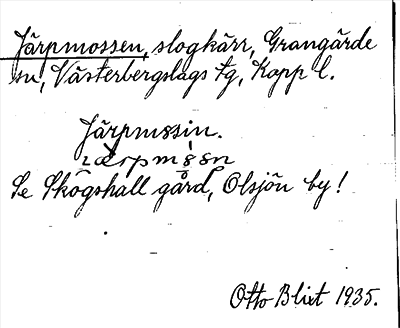 Järpmossen, slogkärr, Grangärde
sn, Västerbergslags tg, Kopp l.
Järpmssin.
Se Skogshall gård, Olsjön by!
Otto Blixt 1935.